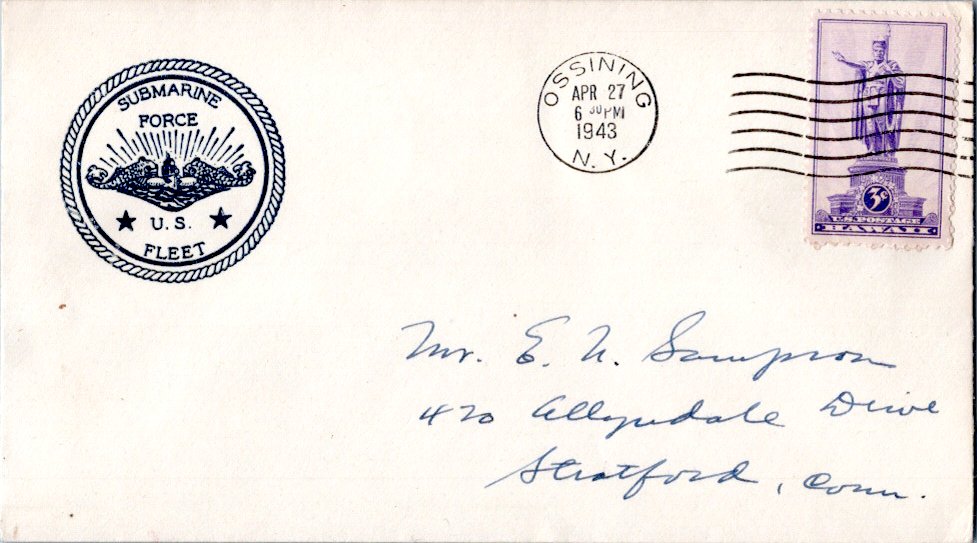 SUBMARINE
FORCE
U.S.
FLEET
OSSINING
APR 27
6 30 PM
1943
N.Y.
3¢
U.S. POSTAGE
HAWAII
Mr. E. N. Sampson
420 Allyndale Drive
Stratford, Conn.